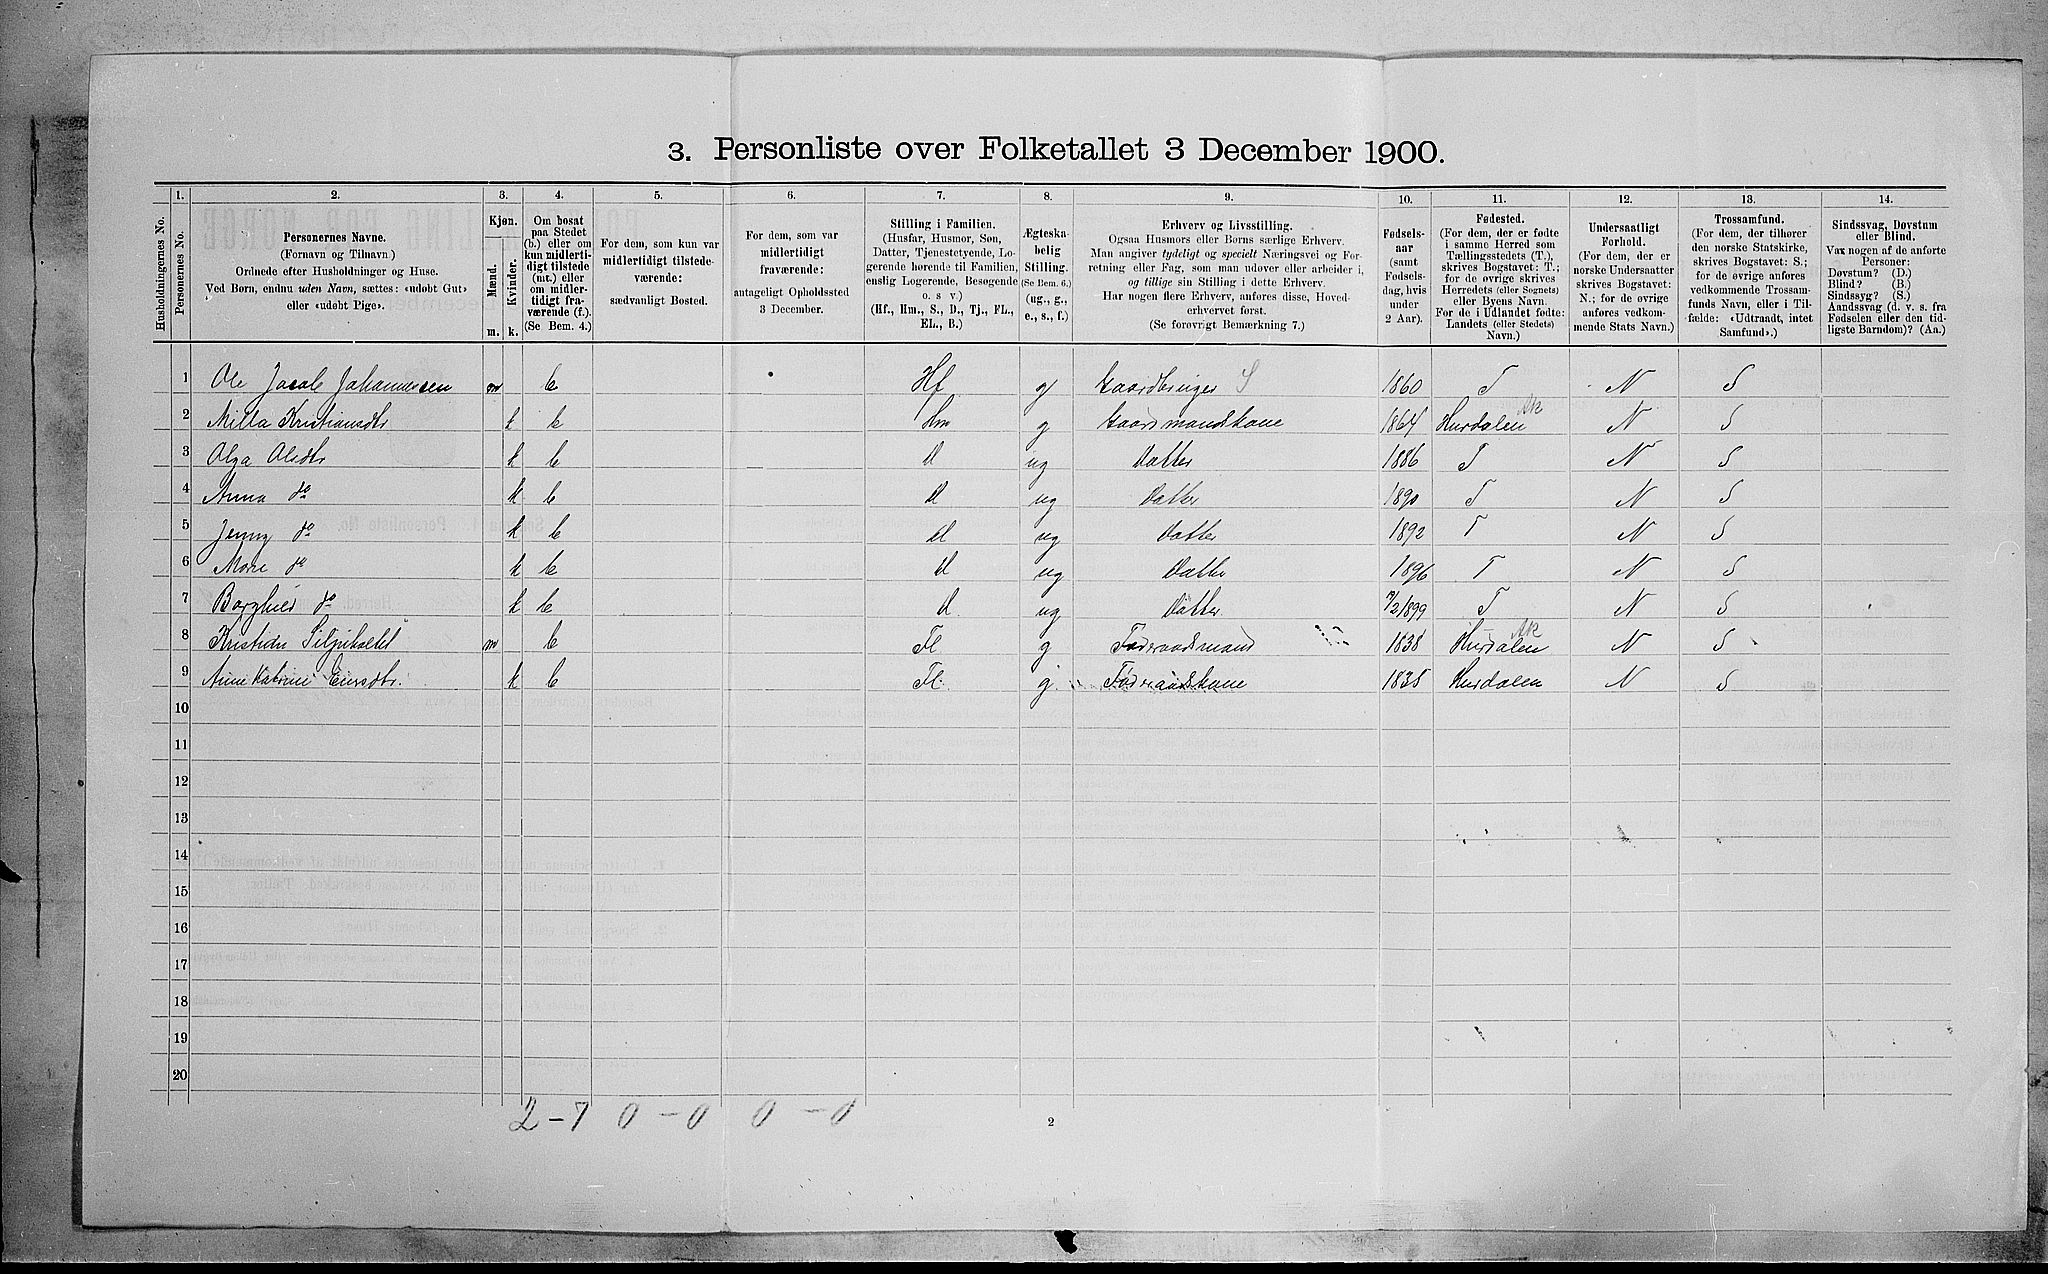 3. Personliste over Folketallet 3 December 1900.
1. 2. 3. 4. 5. 6. 7. 8. 9. 10. 11. 12. 13. 14.
Husholdningernes No.
Personernes No.
Personernes Navne.
(Fornavn og Tilnavn.)
Ordnede efter Husholdninger og Huse.
Ved Børn, endnu uden Navn, sættes: «udøbt Gut»
eller «udøbt Pige».
Kjøn.
Mænd.
Kvinder.
m. k.
Om bosat
paa Stedet
(b.) eller om
kun midlerti-
digt tilstede
(mt.) eller
om midler-
tidigt fra-
værende (f.).
(Se Bem. 4.)
For dem, som kun var
midlertidigt tilstede-
værende:
sædvanligt Bosted.
For dem, som var
midlertidigt
fraværende:
antageligt Opholdssted
3 December.
Stilling i Familien.
(Husfar, Husmor, Søn,
Datter, Tjenestetyende, Lo-
gerende hørende til Familien,
enslig Logerende, Besøgende
o. s v.)
(Hf., Hm., S., D., Tj., FL.,
EL., B.)
Ægteska-
belig
Stilling.
(Se Bem. 6.)
(ug., g.,
e., s., f.)
Erhverv og Livsstilling.
Ogsaa Husmors eller Børns særlige Erhverv.
Man angiver tydeligt og specielt Næringsvei og For-
retning eller Fag, som man udøver eller arbeider i,
og tillige sin Stilling i dette Erhverv.
Har nogen flere Erhverv, anføres disse, Hoved-
erhvervet først.
(Se forøvrigt Bemærkning 7.)
Fødsels-
aar
(samt
Fødsels-
dag, hvis
under
2 Aar).
Fødested.
(For dem, der er fødte
i samme Herred som
Tællingsstedets (T.),
skrives Bogstavet: T.;
for de øvrige skrives
Herredets (eller Sognets)
eller Byens Navn.
For de i Udlandet fødte:
Landets (eller Stedets)
Navn.)
Undersaatligt
Forhold.
(For dem, der er
norske Undersaatter
skrives Bogstavet:
N.; for de øvrige
anføres vedkom-
mende Stats Navn.)
Trossamfund.
(For dem, der tilhører
den norske Statskirke,
skrives Bogstavet: S.;
for de øvrige anføres
vedkommende Trossam-
funds Navn, eller i Til-
fælde: «Udtraadt, intet
Samfund».)
Sindssvag, Døvstum
eller Blind.
Var nogen af de anførte
Personer:
Døvstum? (D.)
Blind? (B.)
Sindssyg? (S.)
Aandssvag (d. v. s. fra
Fødselen eller den tid-
ligste Barndom)? (Aa.)
1 Ole Jacob Johannessen m b Hf g Gaardbruger S 1860 T N S
2 Milla Kristiansdtr k b Hm g Gaardmandskone 1864 Hurdalen Ak N S
3 Olga Olsdtr k b D ug Datter 1886 T N S
4 Anna do k b D ug Datter 1890 T N S
5 Jenny do k b D ug Datter 1892 T N S
6 Marie do k b D ug Datter 1896 T N S
7 Borghild do k b D ug Datter /2 1899 T N S
8 Kristian m b FL g Føderaadsmand 1838 Hurdalen Ak N S
9 Anne Katrine k b FL g Føderaadskone 1835 Hurdalen N S
10
11
12
13
14
15
16
17
18
19
20
2 – 7 0 – 0 0 – 0
2